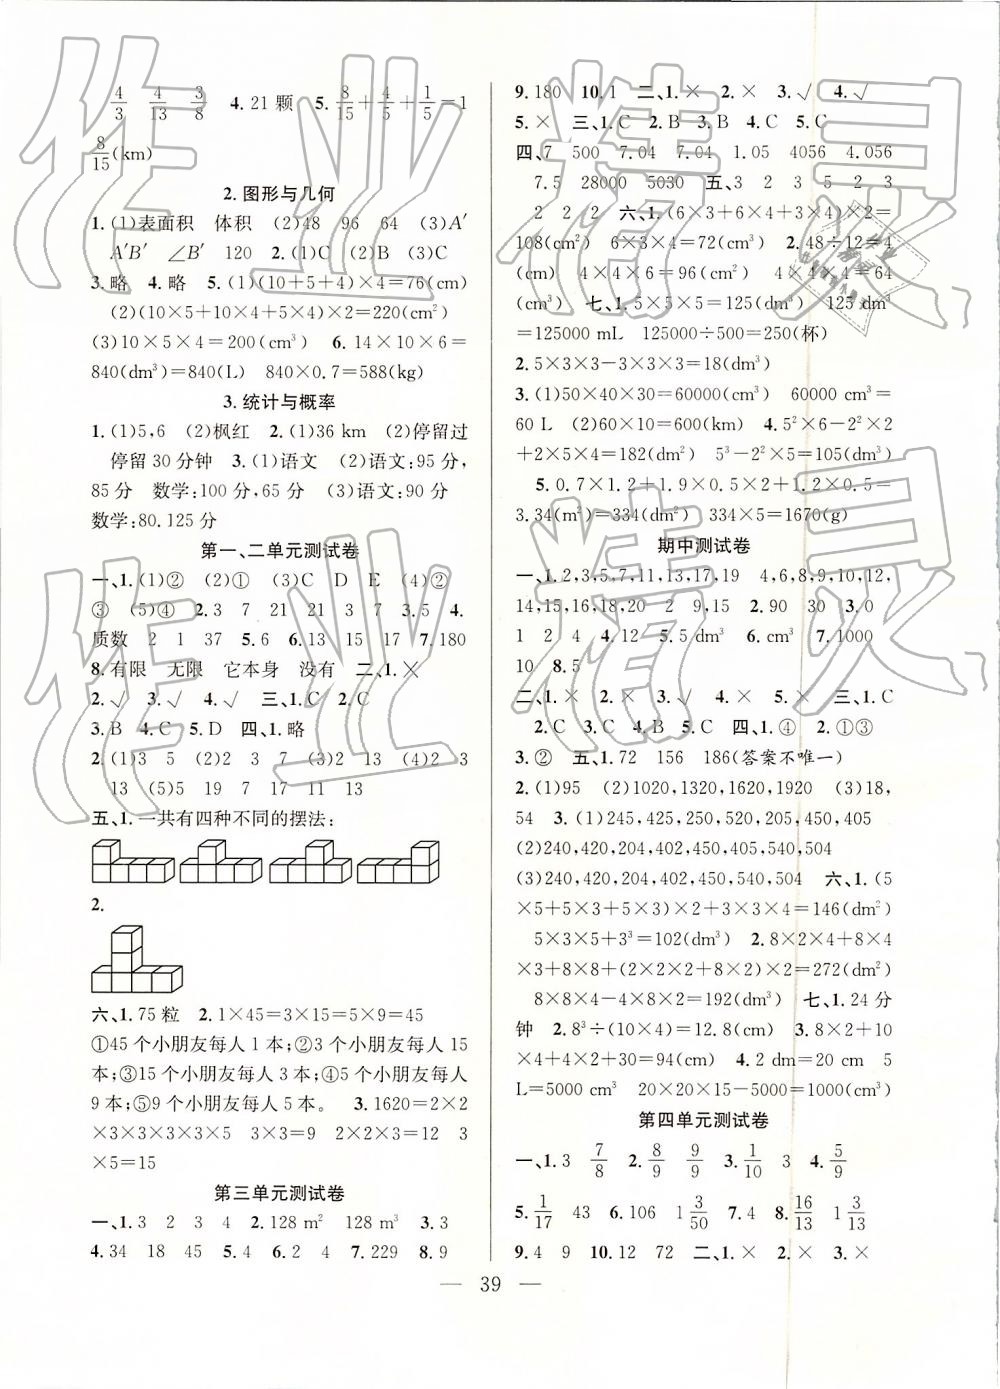 4/3 4/13 3/8 4.21 颗 5. 8/15+4/5+1/5=1
8/15(km)
2.图形与几何
1.(1)表面积 体积 (2)48 96 64 (3)A′
A′B′ ∠B′ 120 2.(1)C (2)B (3)C
3.略 4.略 5.(1)(10+5+4)×4=76(cm)
(2)(10×5+10×4+5×4)×2=220(cm²)
(3)10×5×4=200(cm³) 6.14×10×6=
840(dm³)=840(L) 840×0.7=588(kg)
3.统计与概率
1.(1)5,6 (2)枫红 2.(1)36 km (2)停留过
停留30分钟 3.(1)语文 (2)语文:95分,
85分 数学:100分,65分 (3)语文:90分
数学:80.125分
第一、二单元测试卷
一、1.(1)② (2)① (3)C D E (4)②
③ (5)④ 2.3 7 21 21 3 7 3.5 4.
质数 2 1 37 5.6 6.13 15 17 7.180
8.有限 无限 它本身 没有 二、1.×
2.√ 3.√ 4.√ 三、1.C 2.C
3.B 4.C 5.D 四、1.略
2.(1)3 5 (2)2 3 7 (3)2 13 (4)2 3
13 (5)5 19 7 17 11 13
五、1.一共有四种不同的摆法:
2.
六、1.75粒 2.1×45=3×15=5×9=45
①45个小朋友每人1本;②3个小朋友每人15
本;③15个小朋友每人3本;④5个小朋友每人
9本;⑤9个小朋友每人5本。 3.1620=2×2
×3×3×3×3×5 3×3=9 2×2×3=12 3
×5=15
第三单元测试卷
一、1.3 2 3 4 2.128 m² 128 m³ 3.3
4.34 18 45 5.4 6.2 4 7.229 8.9
9.180 10.1 二、1.× 2.× 3.√ 4.√
5.× 三、1.C 2.B 3.B 4.C 5.C
四、7 500 7.04 7.04 1.05 4056 4.056
7.5 28000 5030 五、3 2 3 5 2 3
2 2 2 六、1.(6×3+6×4+3×4)×2=
108(cm²) 6×3×4=72(cm³) 2.48÷12=4
(cm) 4×4×6=96(cm²) 4×4×4=64
(cm³) 七、1.5×5×5=125(dm³) 125 dm³
=125000 mL 125000÷500=250(杯)
2.5×3×3-3×3×3=18(dm³)
3.(1)50×40×30=60000(cm³) 60000 cm³=
60 L (2)60×10=600(cm) 4.5²×6-2²×2
+2×5×4=182(dm²) 5³-2²×5=105(dm³)
5.0.7×1.2+1.9×0.5×2+1.2×0.5=
3.34(m²)=334(dm²) 334×5=1670(g)
期中测试卷
一、1.2,3,5,7,11,13,17,19 4,6,8,9,10,12,
14,15,16,18,20 2 9,15 2.90 30 3.0
1 2 4 4.12 5.5 dm³ 6.cm³ 7.1000
10 8.5
二、1.× 2.× 3.√ 4.× 5.× 三、1.C
2.C 3.C 4.B 5.C 四、1.④ 2.①③
3.② 五、1.72 156 186(答案不唯一)
2.(1)95 (2)1020,1320,1620,1920 (3)18,
54 3.(1)245,425,250,520,205,450,405
(2)240,420,204,402,540,504
(3)240,420,204,402,450,540,504 六、1.(5
×5+5×3+5×3)×2+3×3×4=146(dm²)
5×3×5+3³=102(dm³) 2.8×2×4+8×4
×3+(8×4+2×2+8×2)×2=272(dm²)
8×8×4-4×8×2=192(dm³) 七、1.24分
钟 2.8³÷(10×4)=12.8(cm) 3.8×2+10
×4+4×2+30=94(cm) 4.2 dm=20 cm 5
L=5000 cm³ 20×20×15-5000=1000(cm³)
第四单元测试卷
一、1.3 7/8 2. 8/9 9/9 3. 1/10 3 4. 5/9
5. 1/17 43 6.106 1 3/50 7.4 8. 16/13 1 3/13
9.4 9 10.12 72 二、1.× 2.× 3.×
— 39 —
作业精灵